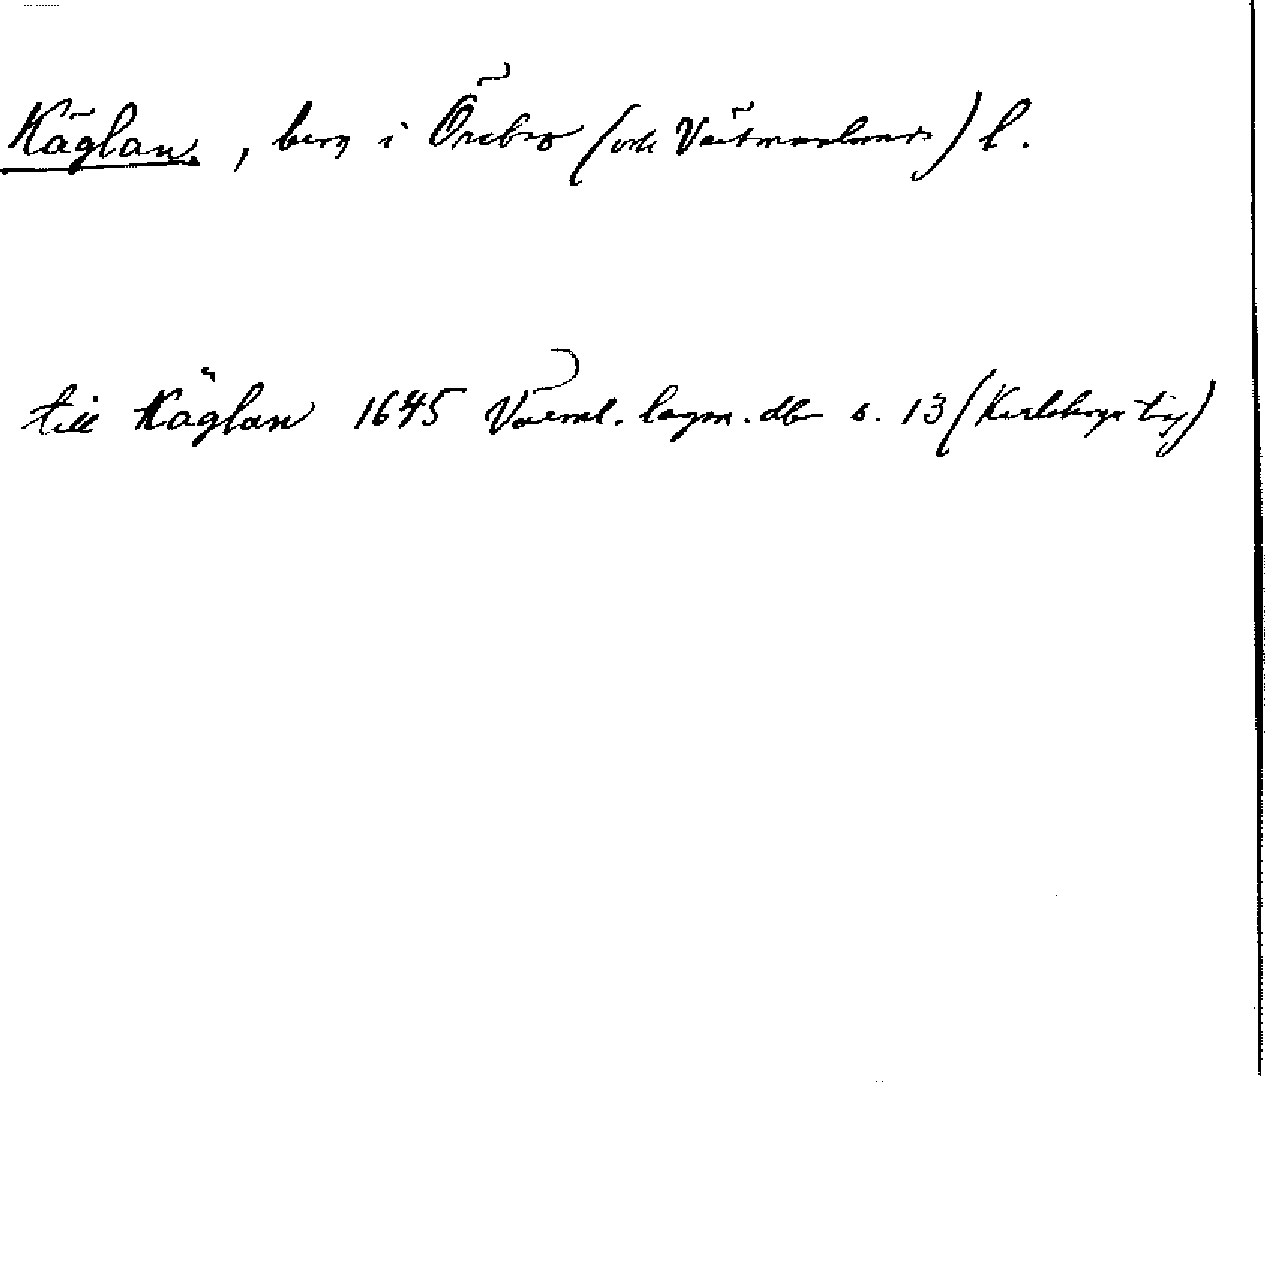 Käglan, berg i Örebro (och Västmanlands) l.
till Käglan 1645 Värml. lagm. db s. 13 (Karlskoga tg)